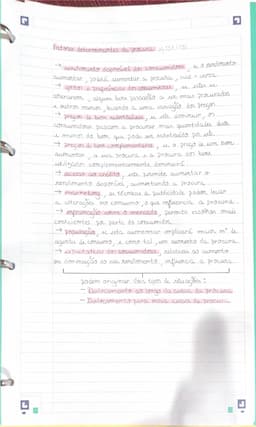 Fatores determinantes da procura
→ rendimento disponível dos consumidores, se o rendimento
aumentar, poderá aumentar a procura, e vice-versa.
→ gostos e preferências dos consumidores, se se
alterarem, alguns bens passarão a ser mais procurados
e outros menos, levando a uma variação do preço.
→ preços de bens substituíveis, se este diminuir, os
consumidores passam a procurar mais quantidades deste
e menos do bem que pode ser substituído por ele.
→ preços de bens complementares, se o preço de um bem
aumentar, a sua procura e a procura do bem
utilizado complementarmente diminuirá.
→ acesso ao crédito, este permite aumentar o
rendimento disponível, aumentando a procura.
→ marketing, as técnicas de publicidade podem levar
a alterações no consumo, o que influencia a procura.
→ informação sobre o mercado, permite escolhas mais
conscientes por parte do consumidor.
→ população, se esta aumentar implicará maior nº de
agentes de consumo, e como tal, um aumento da procura.
→ expectativas dos consumidores, relativas ao aumento
ou diminuição do seu rendimento, influencia a procura.
podem originar dois tipos de situações:
- Deslocamento ao longo da curva da procura
- Deslocamento para outra curva da procura